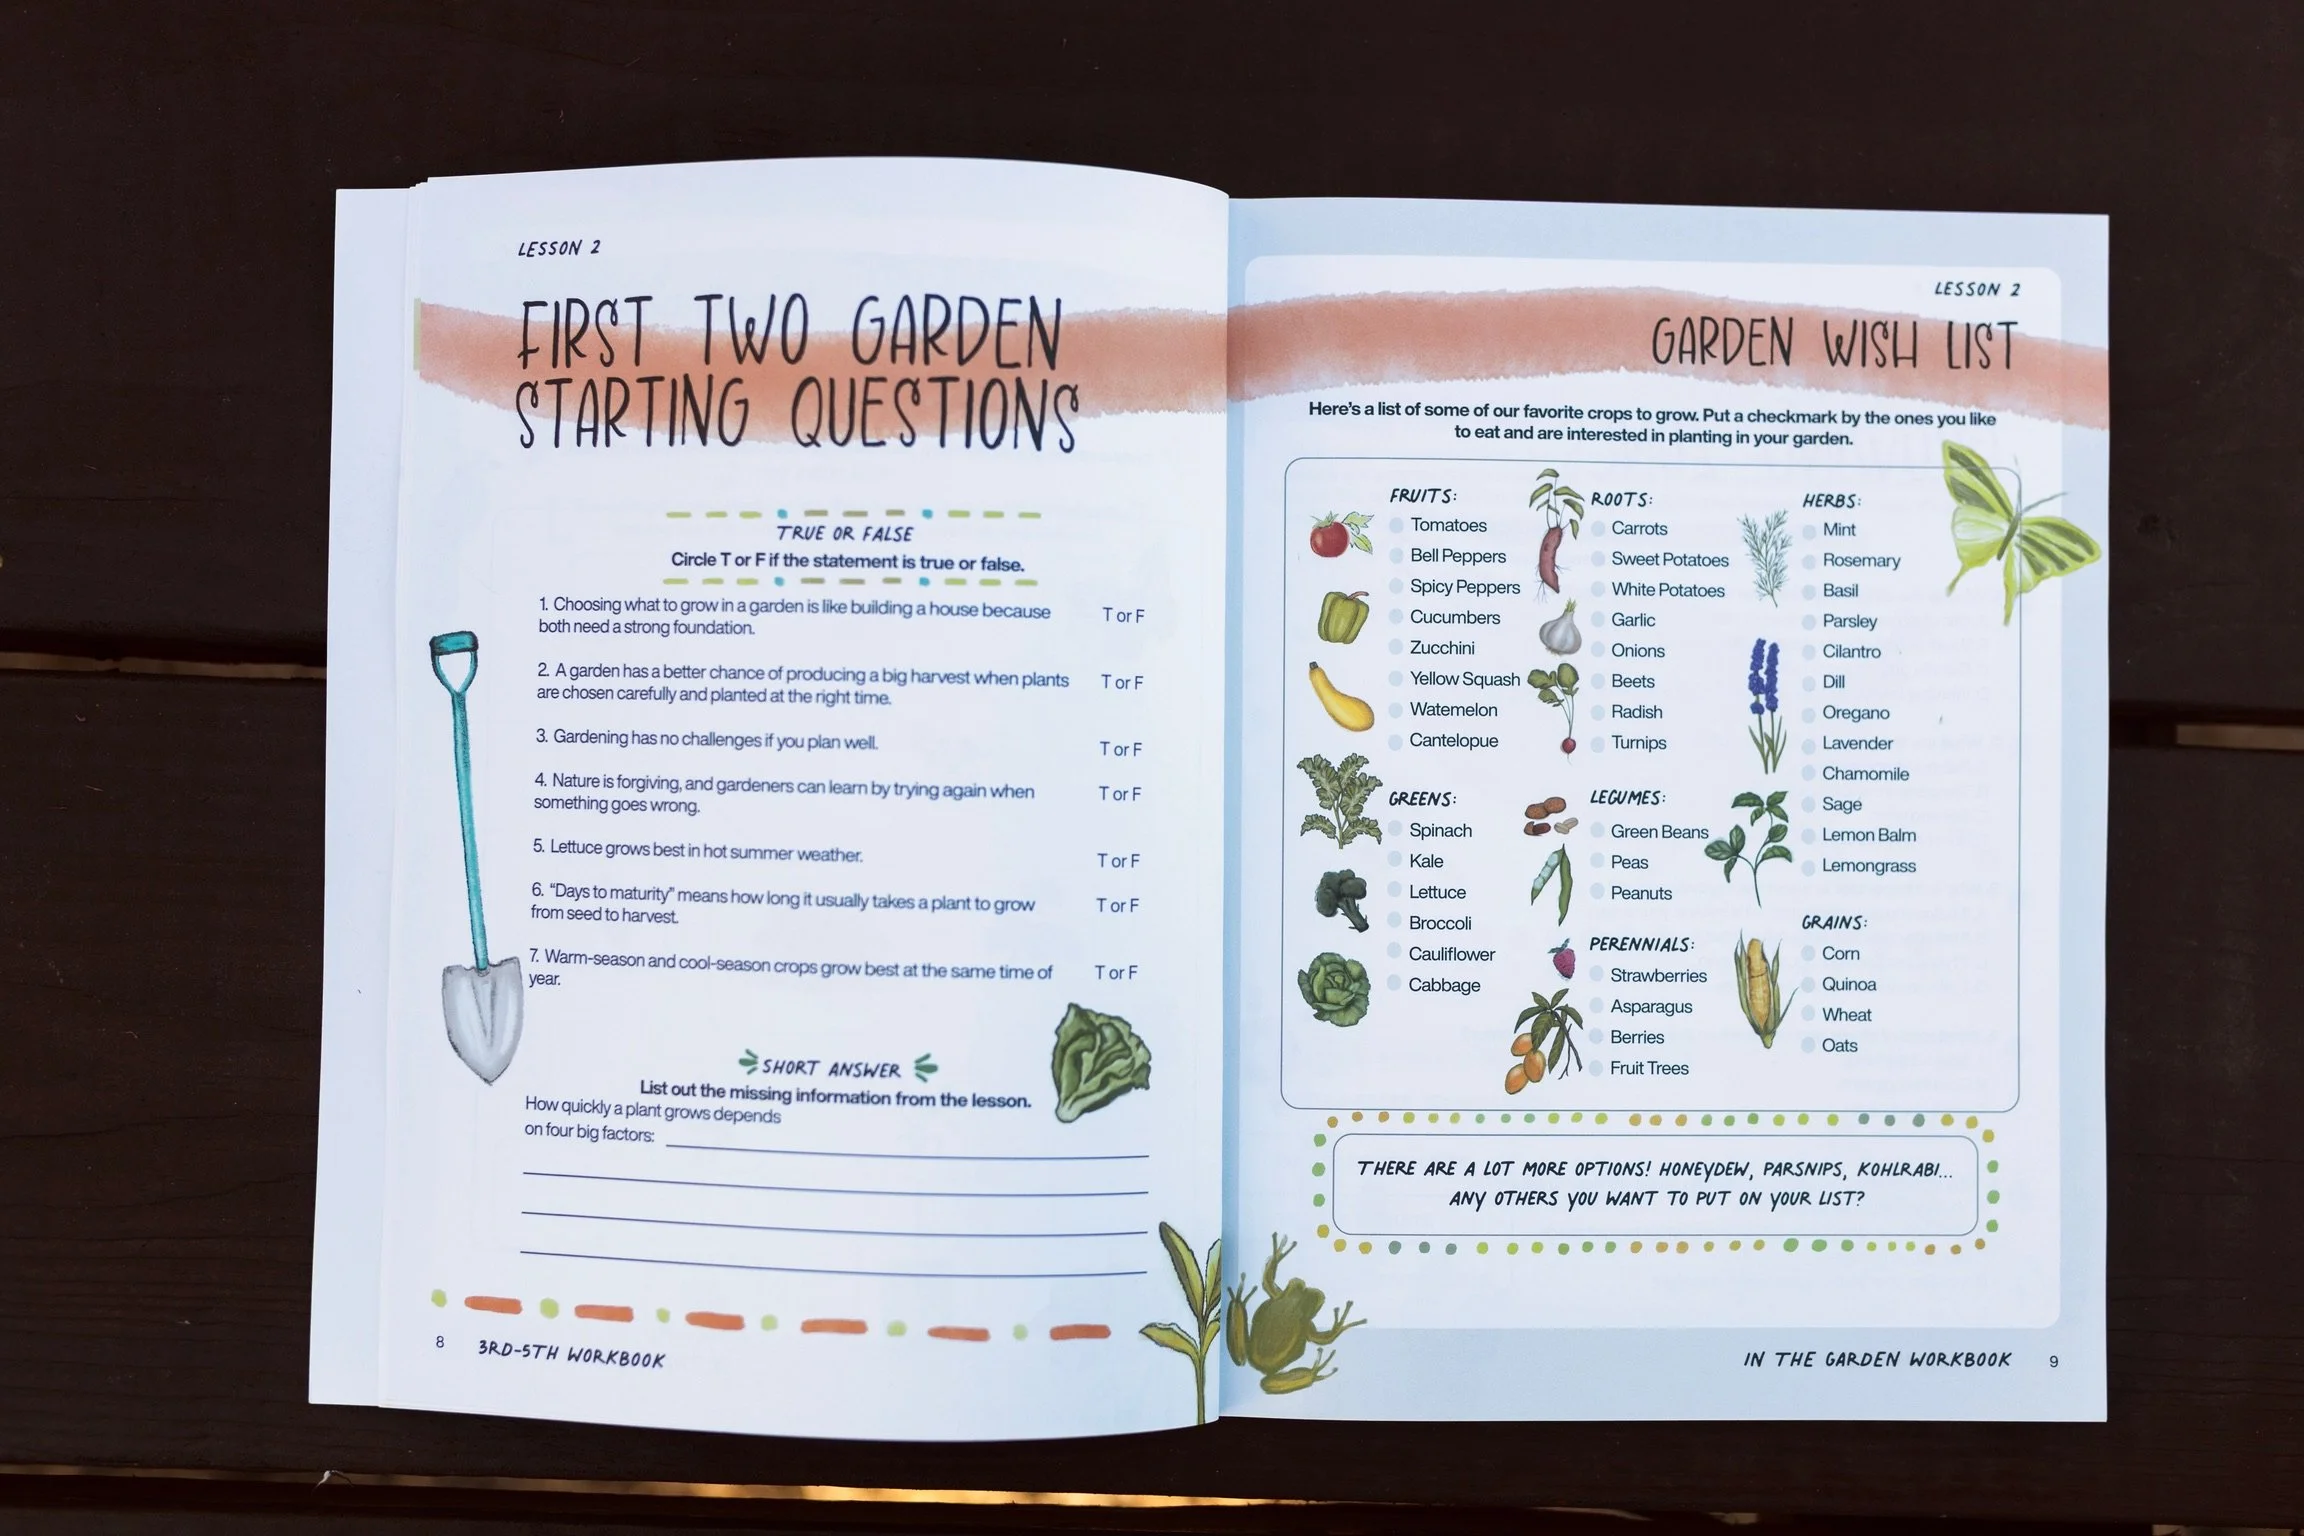 LESSON 2
FIRST TWO GARDEN
STARTING QUESTIONS
TRUE OR FALSE
Circle T or F if the statement is true or false.
1. Choosing what to grow in a garden is like building a house because
both need a strong foundation.
T or F
2. A garden has a better chance of producing a big harvest when plants
are chosen carefully and planted at the right time.
T or F
3. Gardening has no challenges if you plan well.
T or F
4. Nature is forgiving, and gardeners can learn by trying again when
something goes wrong.
T or F
5. Lettuce grows best in hot summer weather.
T or F
6. “Days to maturity” means how long it usually takes a plant to grow
from seed to harvest.
T or F
7. Warm-season and cool-season crops grow best at the same time of
year.
T or F
SHORT ANSWER
List out the missing information from the lesson.
How quickly a plant grows depends
on four big factors:
8 3RD-5TH WORKBOOK
LESSON 2
GARDEN WISH LIST
Here's a list of some of our favorite crops to grow. Put a checkmark by the ones you like
to eat and are interested in planting in your garden.
FRUITS:
Tomatoes
Bell Peppers
Spicy Peppers
Cucumbers
Zucchini
Yellow Squash
Watemelon
Cantelopue
GREENS:
Spinach
Kale
Lettuce
Broccoli
Cauliflower
Cabbage
ROOTS:
Carrots
Sweet Potatoes
White Potatoes
Garlic
Onions
Beets
Radish
Turnips
LEGUMES:
Green Beans
Peas
Peanuts
PERENNIALS:
Strawberries
Asparagus
Berries
Fruit Trees
HERBS:
Mint
Rosemary
Basil
Parsley
Cilantro
Dill
Oregano
Lavender
Chamomile
Sage
Lemon Balm
Lemongrass
GRAINS:
Corn
Quinoa
Wheat
Oats
THERE ARE A LOT MORE OPTIONS! HONEYDEW, PARSNIPS, KOHLRABI...
ANY OTHERS YOU WANT TO PUT ON YOUR LIST?
IN THE GARDEN WORKBOOK 9